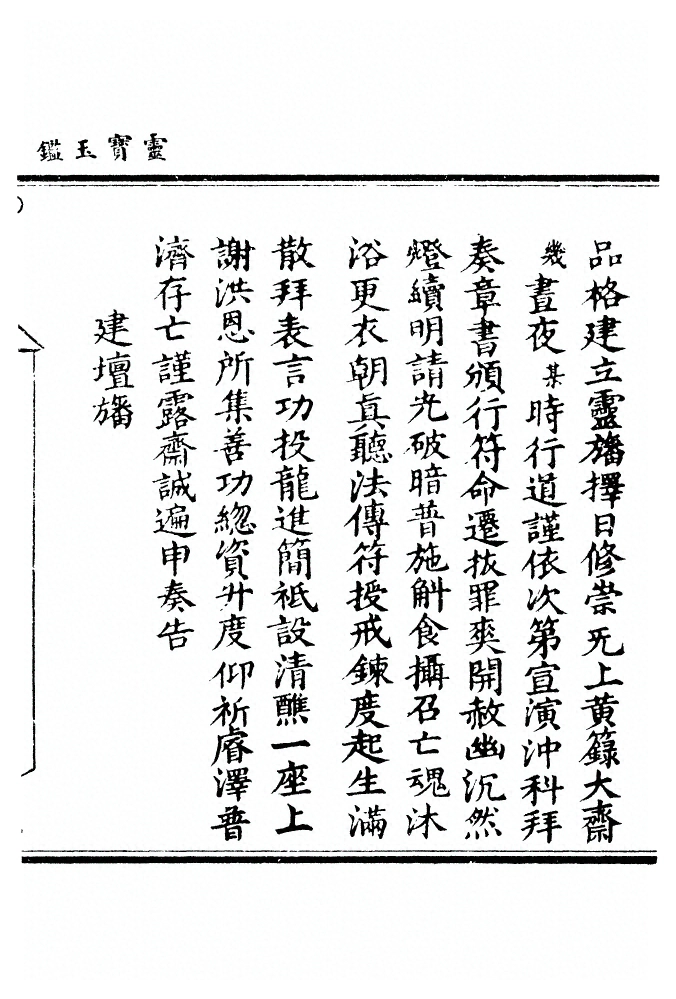 靈寶玉鑑
品格建立靈旛擇日修崇无上黄籙大齋
幾晝夜某時行道謹依次第宣演沖科拜
奏章書頒行符命遷拔罪爽開赦幽沉然
燈續明請光破暗普施斛食攝召亡魂沐
浴更衣朝真聽法傳符授戒鍊度起生滿
散拜表言功投龍進簡祇設清醮一座上
謝洪恩所集善功總資升度仰祈睿澤普
濟存亡謹露齋誠遍申奏告
建壇旛